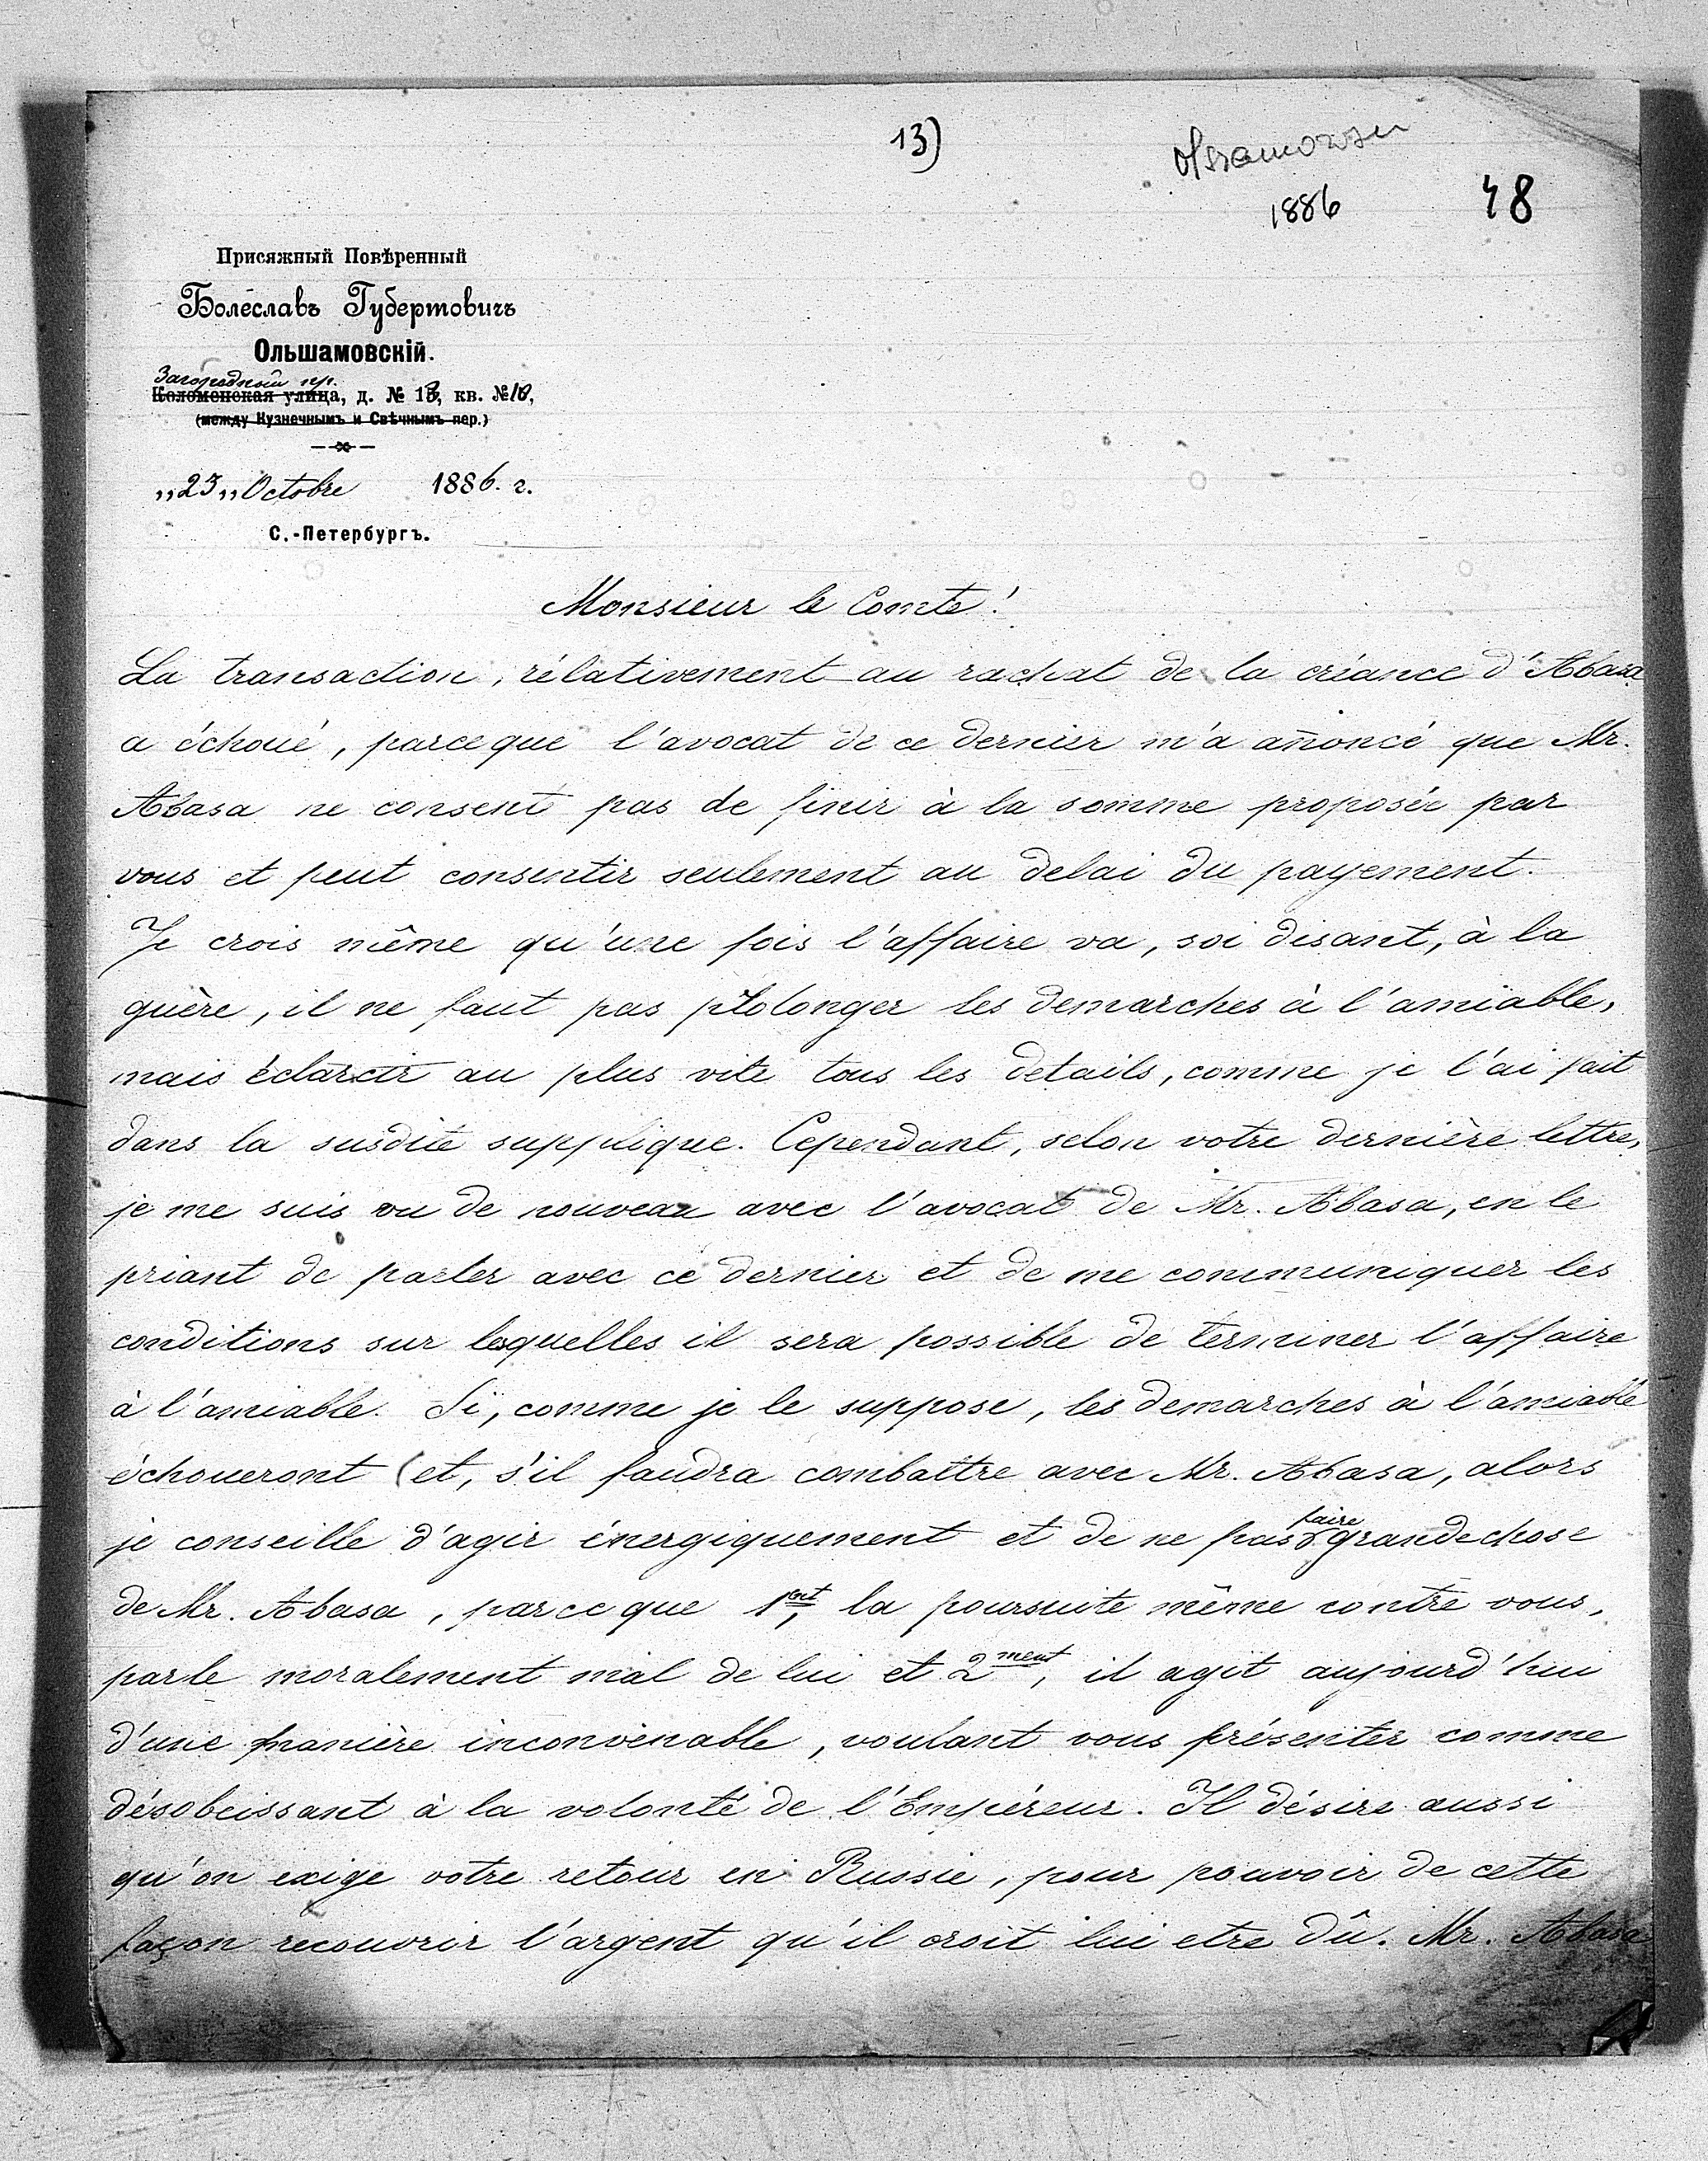 13)
1886
48
Присяжный Повѣренный
Болеславъ Губертовичъ
Ольшамовскій.
Загородный пр.
Коломенская улица, д. № 13, кв. №10,
(между Кузнечнымъ и Свѣчнымъ пер.)
„23„ Octobre 1886. г.
С.-Петербургъ.
Monsieur le Comte!
La transaction, rélativement au rachat de la créance d'Abasa
a échoué, parceque l'avocat de ce dernier m'a anoncé que Mr.
Abasa ne consent pas de finir à la somme proposée par
vous et peut consentir seulement au delai du payement.
Je crois même qu'une fois l'affaire va, soi disant, à la
guère, il ne faut pas prolonger les demarches à l'amiable,
mais éclarcir au plus vite tous les details, comme je l'ai fait
dans la susdite supplique. Cependant, selon votre dernière lettre,
je me suis vu de nouveau avec l'avocat de Mr. Abasa, en le
priant de parler avec ce dernier et de me communiquer les
conditions sur lesquelles il sera possible de términer l'affaire
à l'amiable. Si, comme je le suppose, les demarches à l'amiable
échoueront (et, s'il faudra combattre avec Mr. Abasa, alors
je conseille d'agir énergiquement et de ne pas faire grandechose
de Mr. Abasa, parce que 1ent, la poursuite même contre vous,
parle moralement mal de lui et 2ment, il agit aujourd'hui
d'une manière inconvenable, voulant vous présenter comme
désobeissant à la volonté de l'Empéreur. Il désire aussi
qu'on exige votre retour en Russie, pour pouvoir de cette
façon recouvrir l'argent qu'il croit lui etre dû. Mr. Abasa